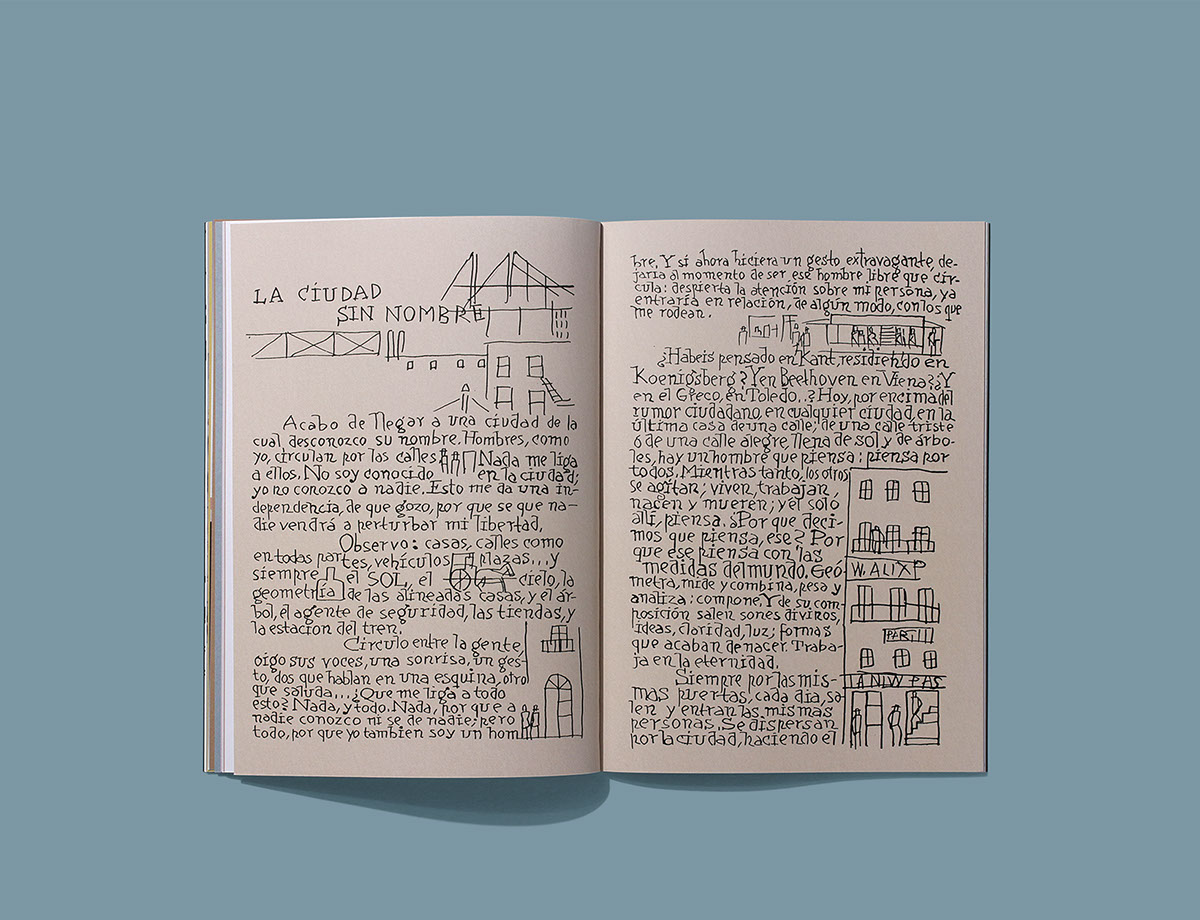 LA CIUDAD
SIN NOMBRE
Acabo de llegar a una ciudad de la
cual, desconozco su nombre. Hombres, como
yo, circulan por las calles Nada me liga
a ellos. No soy conocido en la ciudad;
yo no conozco a nadie. Esto me da una in-
dependencia, de que gozo, por que se que na-
die vendrá a perturbar mi libertad.
Observo: casas, calles como
en todas partes, vehículos plazas...y
siempre el SOL, el cielo, la
geometría de las alineadas casas, y el ár-
bol, el agente de seguridad, las tiendas, y
la estacion del tren.
Circulo entre la gente,
oigo sus voces, una sonrisa, un ges-
to, dos que hablan en una esquina, otro
que saluda...¿Que me liga a todo
esto? Nada, y todo. Nada, por que a
nadie conozco ni se de nadie; pero
todo, por que yo tambien soy un hom
bre. Y si ahora hiciera un gesto extravagante, de-
jaria al momento de ser ese hombre libre que cir-
cula: despierta la atención sobre mi persona, ya
entraría en relación, de algún modo, con los que
me rodean.
¿Habeis pensado en Kant, residiendo en
Koenigsberg? Y en Beethoven en Viena? ¿Y
en el Greco, en Toledo..? Hoy, por encima del
rumor ciudadano, en cualquier ciudad, en la
última casa de una calle; de una calle triste
ó de una calle alegre, llena de sol y de árbo-
les, hay un hombre que piensa: piensa por
todos. Mientras tanto, los otros
se agitan; viven, trabajan,
nacen y mueren; y él solo
allí, piensa. ¿Por que deci-
mos que piensa, ese? Por
que ese piensa con las
medidas del mundo. Geó-
metra, mide y combina, pesa y
analiza: compone. Y de su com
posición salen sones divinos,
ideas, claridad, luz; formas
que acaban de nacer. Traba-
ja en la eternidad.
Siempre por las mis-
mas puertas, cada dia, sa-
len y entran las mismas
personas. Se dispersan
por la ciudad, haciendo el